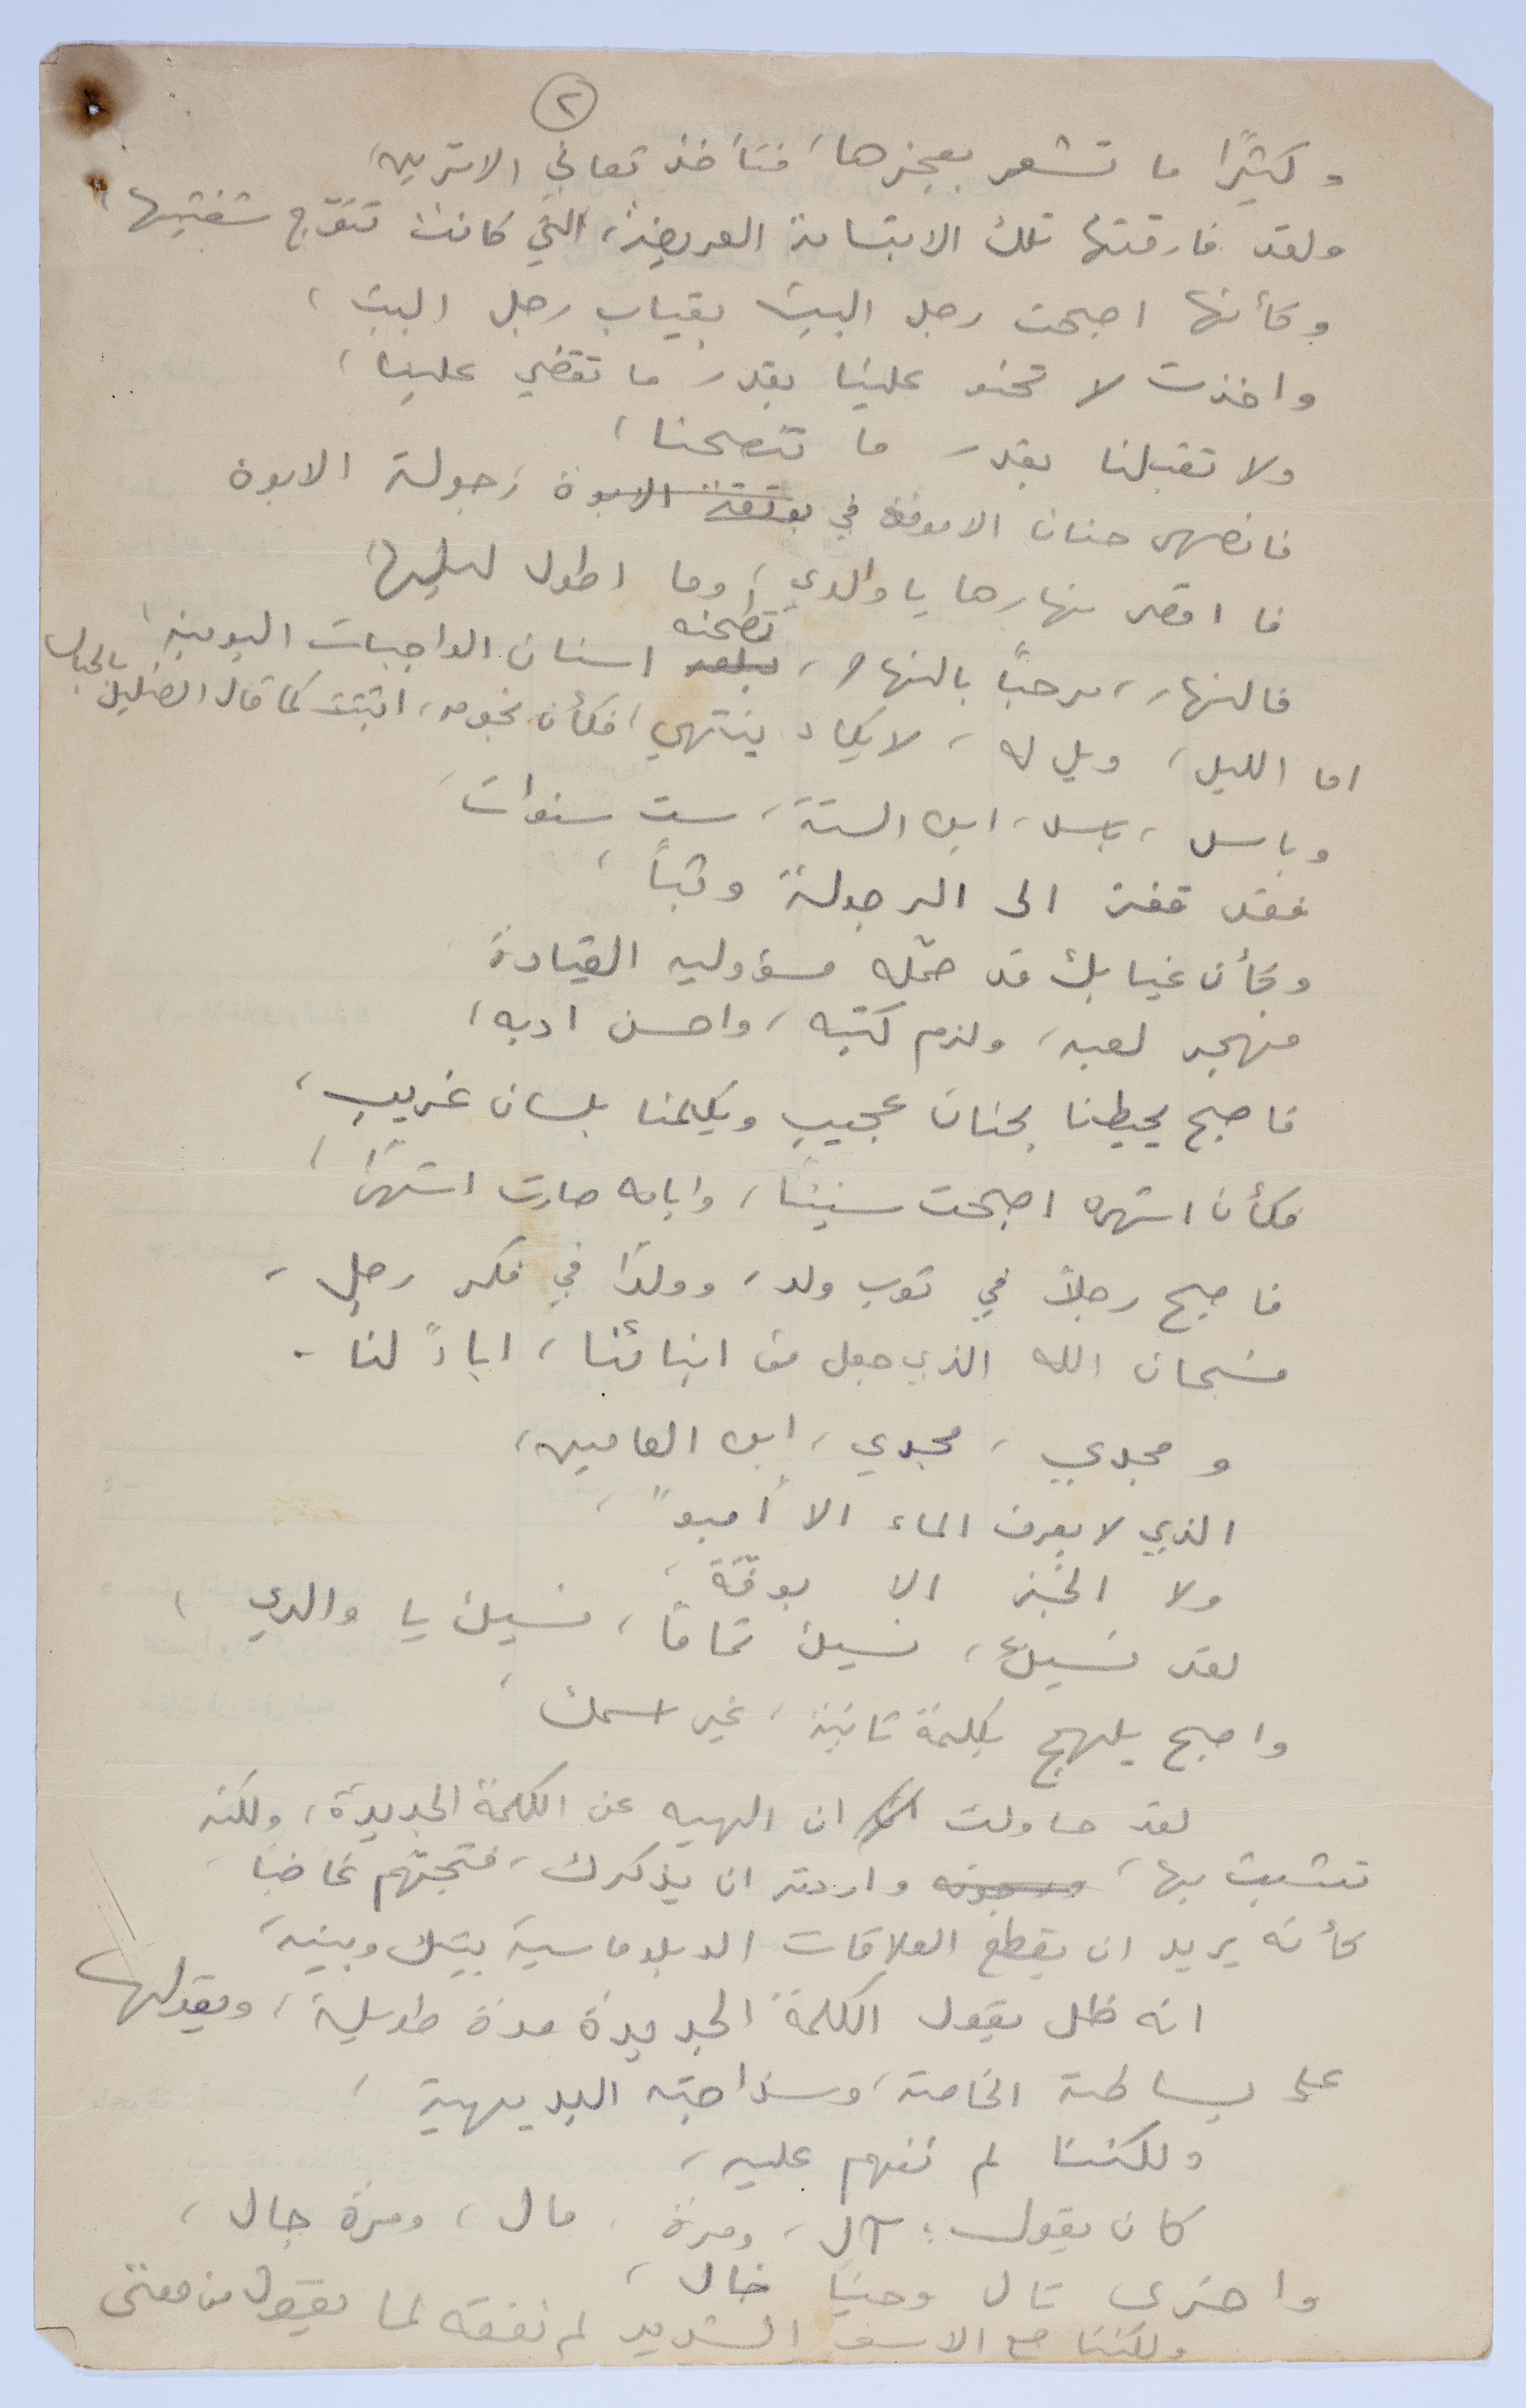 ٢
وكثيرًا ما تشعر بعجزها، فتأخذ تعاني الامرين،
ولقد فارقتها تلك الابتسامة العريضة، التي كانت تتوّج شفتيها،
وكأنها اصبحت رجل البيت بغياب رجل البيت،
واخذت لا تحنو علينا بقدر ما تقضي علينا،
ولا تقبلنا بقدر ما تنصحنا،
فانصهر حنان الامومة في بوتقة الابوة رجولة الابوة
فما اقصر نهارها يا والدي، وما اطول ليلها،
فالنهار، مرحبًا بالنهار، تطحنه اسنان الواجبات اليومية،
اما الليل، ويل له، لا يكاد ينتهي، فكأن نجومه، اثبتت كما قال الضليل بالجبال
وباسل، باسل، ابن الستة، ست سنوات،
فقد قفز الى الرجولة وثبًا،
وكأن غيابك قد حمّله مسؤولية القيادة
فهجر لعبه، ولزم كتبه، واحسن ادبه،
فاصبح يحيطنا بحنان عجيب ويكلمنا بلسان غريب،
فكأن اشهره اصبحت سنينًا، وايامه صارت اشهرًا،
فاصبح رجلاً في ثوب ولد، وولدًا في فكر رجل،
فسبحان الله الذي جعل من ابنائنا، اباءً لنا.
ومجدي، مجدي، ابن العامين،
الذي لا يعرف الماء الا أمبوً،
ولا الخبز الا بوفّة،
لقد نسيك، نسيك تمامًا، نسيك يا والدي،
واصبح يلهج بكلمة ثانية، غير اسمك،
لقد حاولت ان الهيه عن الكلمة الجديدة، ولكنه
تشبث بها، واردته ان يذكرك، فتجهّم غاضبًا،
كأنه يريد ان يقطع العلاقات الدبلوماسية بينك وبينه،
انه ظل يقول الكلمة الجديدة مدة طويلة، ويقولها
على بساطته الخاصة، وسذاجته البديهية،
ولكننا لم نفهم عليه،
كان يقول: آل، ومرة، مال، ومرة جال،
واخرى تال وحينًا خال،
ولكننا مع الاسف الشديد لم نفقه لما يقول من معنى